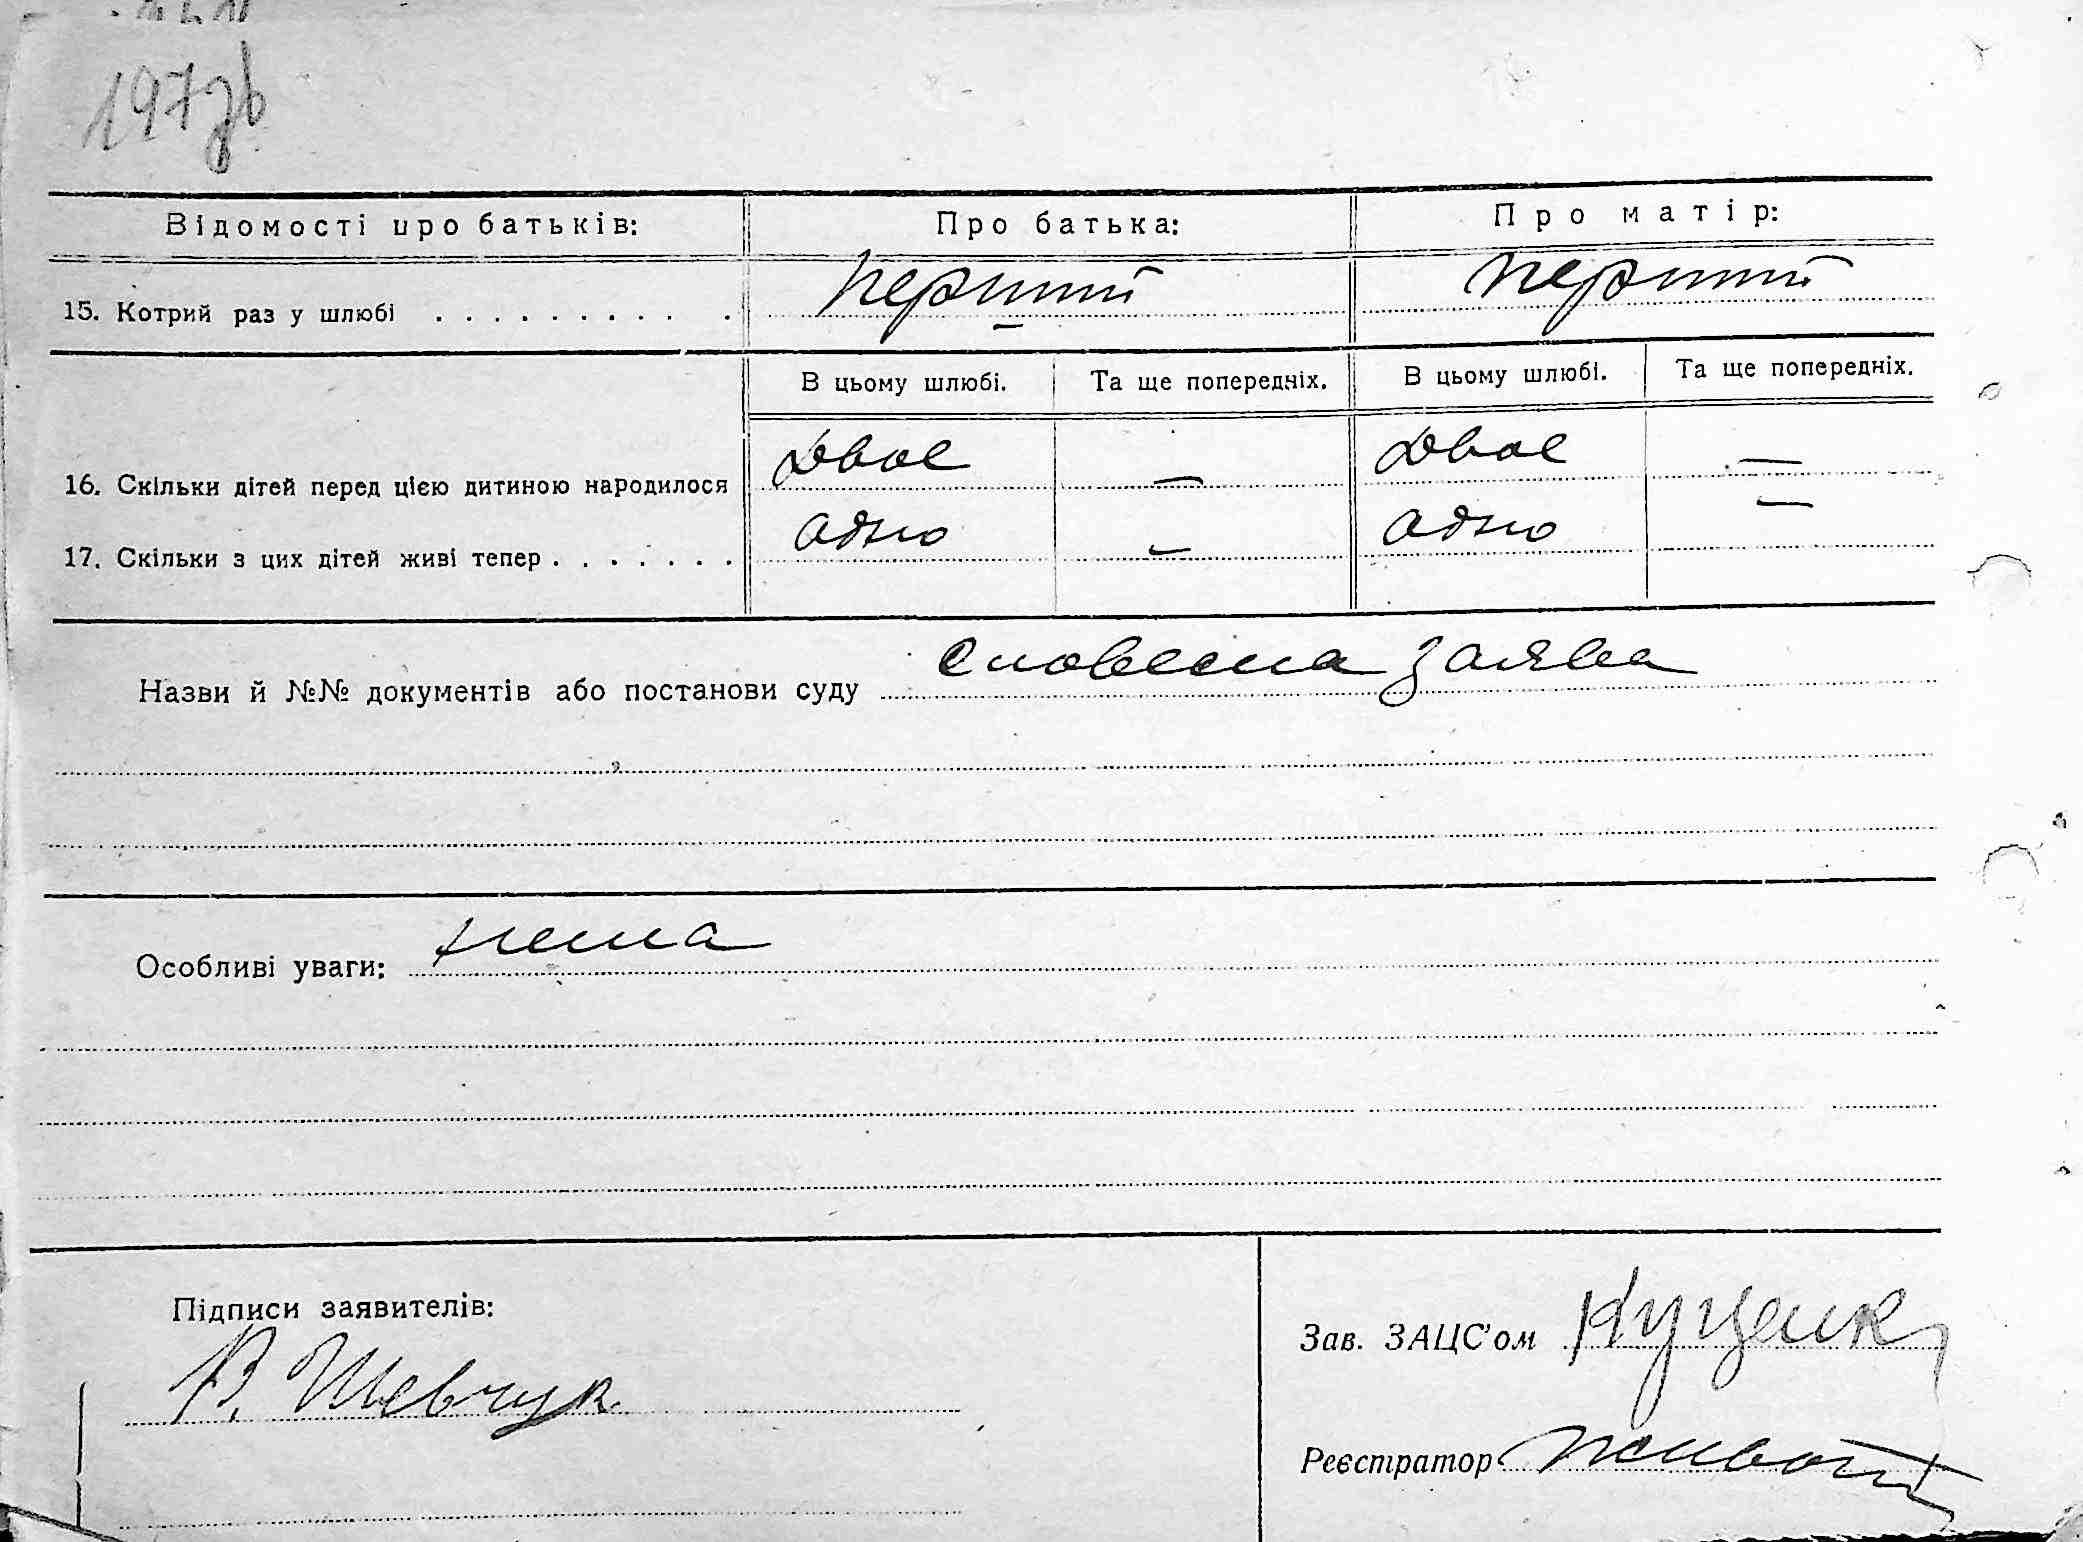 197зв
Відомості про батьків: Про батька: Про матір:
15. Котрий раз у шлюбі . . . . . . . . . . перший перший
В цьому шлюбі. Та ще попередніх. В цьому шлюбі. Та ще попередніх.
16. Скільки дітей перед цією дитиною народилося двоє — двоє —
17. Скільки з цих дітей живі тепер . . . . . . . одно — одно —
Назви й №№ документів або постанови суду словесна заява
Особливі уваги: нема
Підписи заявителів:
Зав. ЗАЦС'ом Куценк
В. Шевчук
Реєстратор